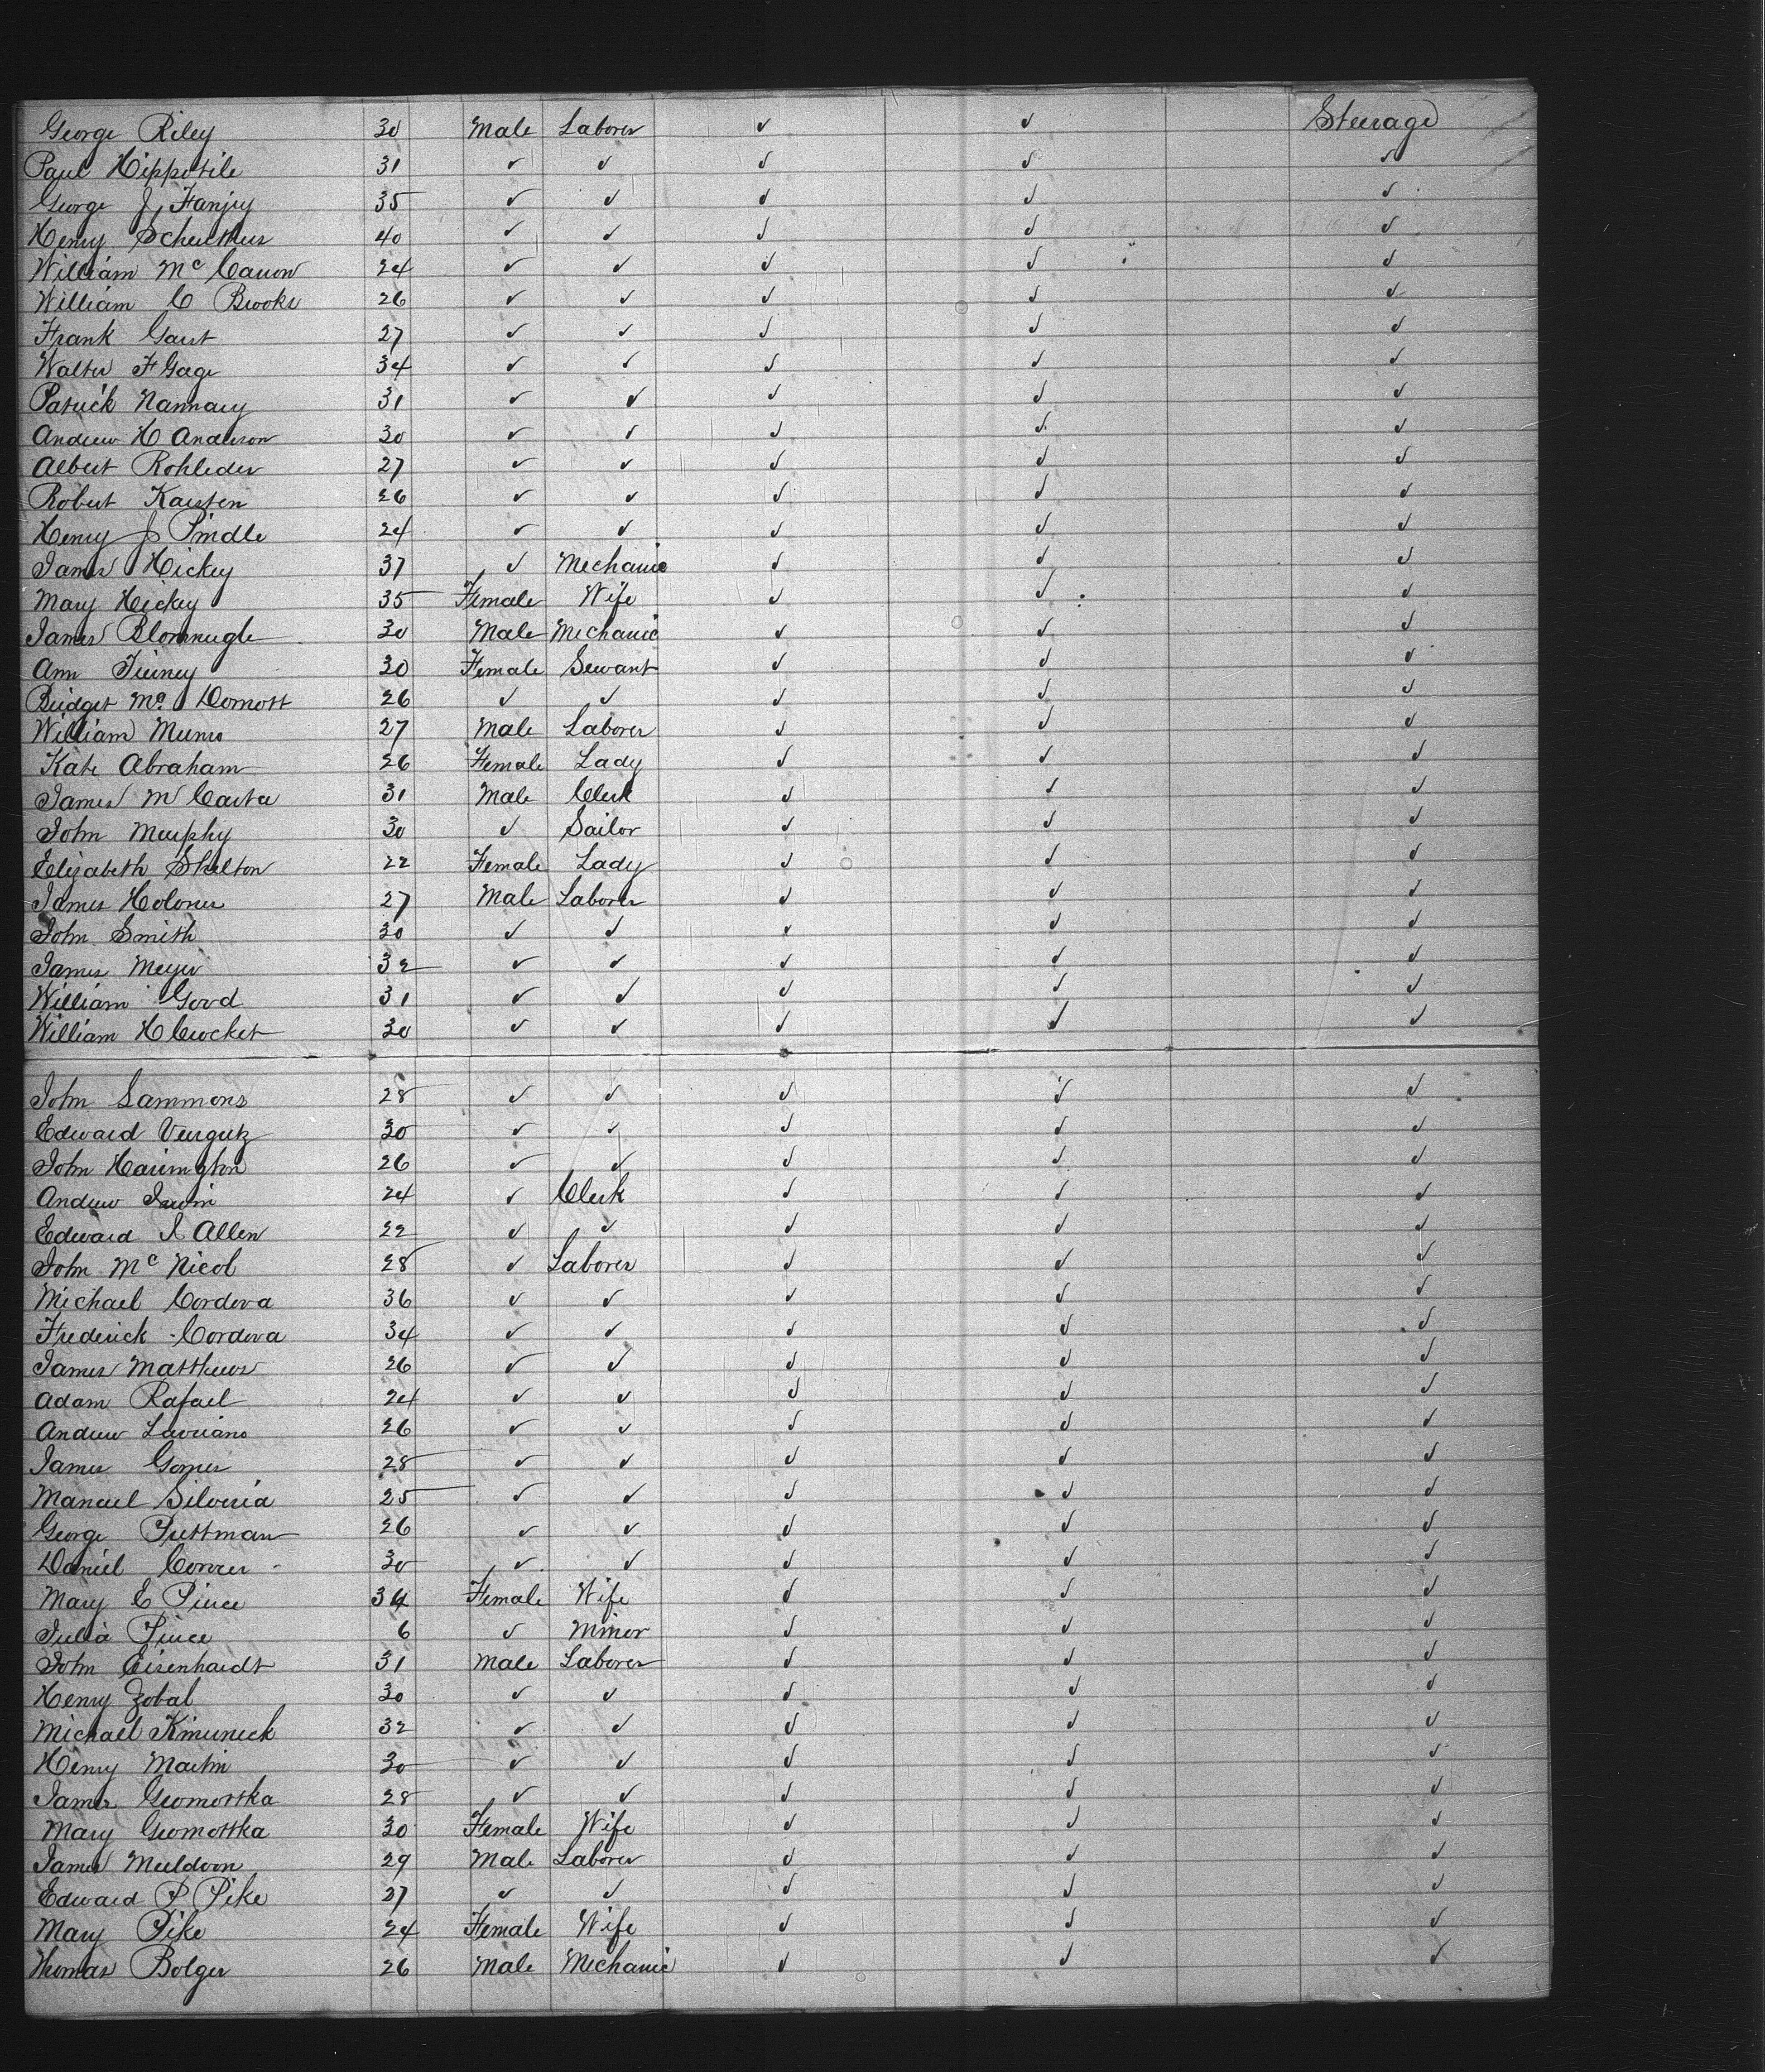 George Riley 30 Male Laborer ✓ ✓ Steerage
Paul Hippotile 31 ✓ ✓ ✓ ✓ ✓
George J. Fanjoy 35 ✓ ✓ ✓ ✓ ✓
Henry 40 ✓ ✓ ✓ ✓ ✓
William Mc Canon 24 ✓ ✓ ✓ ✓ ✓
William C Brooks 26 ✓ ✓ ✓ ✓ ✓
Frank Gant 27 ✓ ✓ ✓ ✓ ✓
Walter F Gage 34 ✓ ✓ ✓ ✓ ✓
Patrick Nannary 31 ✓ ✓ ✓ ✓ ✓
Andrew H Anderson 30 ✓ ✓ ✓ ✓ ✓
Albert Rohleder 27 ✓ ✓ ✓ ✓ ✓
Robert Karsten 26 ✓ ✓ ✓ ✓ ✓
Henry J Pindle 24 ✓ ✓ ✓ ✓ ✓
James Hickey 37 ✓ Mechanic ✓ ✓ ✓
Mary Hickey 35 Female Wife ✓ ✓ ✓
James 30 Male Mechanic ✓ ✓ ✓
Ann Tierney 30 Female Servant ✓ ✓ ✓
Bridget Mc Domott 26 ✓ ✓ ✓ ✓ ✓
William Munro 27 Male Laborer ✓ ✓ ✓
Kate Abraham 26 Female Lady ✓ ✓ ✓
James M Carter 31 Male Clerk ✓ ✓ ✓
John Murphy 30 ✓ Sailor ✓ ✓ ✓
Elizabeth Shelton 22 Female Lady ✓ ✓ ✓
James Holones 27 Male Laborer ✓ ✓ ✓
John Smith 30 ✓ ✓ ✓ ✓ ✓
James Meyer 32 ✓ ✓ ✓ ✓ ✓
William Good 31 ✓ ✓ ✓ ✓ ✓
William H Crocket 30 ✓ ✓ ✓ ✓ ✓
John Sammons 28 ✓ ✓ ✓ ✓ ✓
Edward Vergutz 30 ✓ ✓ ✓ ✓ ✓
John Harrington 26 ✓ ✓ ✓ ✓ ✓
Andrew Irwin 24 ✓ Clerk ✓ ✓ ✓
Edward I Allen 22 ✓ ✓ ✓ ✓ ✓
John Mc Nicol 28 ✓ Laborer ✓ ✓ ✓
Michael Cordova 36 ✓ ✓ ✓ ✓ ✓
Frederick Cordova 34 ✓ ✓ ✓ ✓ ✓
James Matthews 26 ✓ ✓ ✓ ✓ ✓
Adam Rafael 24 ✓ ✓ ✓ ✓ ✓
Andrew Lavriano 26 ✓ ✓ ✓ ✓ ✓
James Gomes 28 ✓ ✓ ✓ ✓ ✓
Manuel Silveria 25 ✓ ✓ ✓ ✓ ✓
George Puttman 26 ✓ ✓ ✓ ✓ ✓
Daniel 30 ✓ ✓ ✓ ✓ ✓
Mary E Pierce 34 Female Wife ✓ ✓ ✓
Julia Pierce 6 ✓ Minor ✓ ✓ ✓
John Eisenhardt 31 Male Laborer ✓ ✓ ✓
Henry Zobal 30 ✓ ✓ ✓ ✓ ✓
Michael 32 ✓ ✓ ✓ ✓ ✓
Henry Martin 30 ✓ ✓ ✓ ✓ ✓
James Geomottka 28 ✓ ✓ ✓ ✓ ✓
Mary Geomottka 30 Female Wife ✓ ✓ ✓
James Muldoon 29 Male Laborer ✓ ✓ ✓
Edward P. Pike 27 ✓ ✓ ✓ ✓ ✓
Mary Pike 24 Female Wife ✓ ✓ ✓
Thomas Bolger 26 Male Mechanic ✓ ✓ ✓